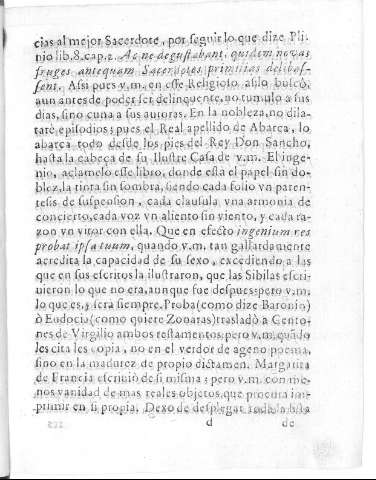 cias al mejor Sacerdote, por seguir lo que dize Pli-
nio lib. 8. cap. 2. Ac ne degustabant, quidem novas
fruges antequam Sacerdotes primitias delibas-
sent. Assi pues v.m. en esse Religioso asilo buscò,
aun antes de poder ser delinquente, no tumulo a sus
dias, sino cuna a sus autoras. En la nobleza, no dila-
tarè episodios; pues el Real apellido de Abarca, lo
abarca todo desde los pies del Rey Don Sancho,
hasta la cabeça de su Ilustre Casa de v.m. El inge-
nio, aclamelo esse libro, donde està el papel sin do-
blez, la tinta sin sombra, siendo cada folio vn paren-
tesis de suspension, cada clausula vna armonia de
concierto, cada voz vn aliento sin viento, y cada ra-
zon vn vitor con ella. Que en efecto ingenium res
probat ipsa tuum, quando v.m. tan gallardamente
acredita la capacidad de su sexo, excediendo a las
que en sus escritos la ilustraron, que las Sibilas escri-
uieron lo que no era, aunque fue despues: pero v.m.
lo que es, y serà siempre. Proba (como dize Baronio)
ò Eudocia (como quiere Zonaras) trasladò a Cento-
nes de Virgilio ambos testamentos: pero v.m. quãdo
les cita les copia, no en el verdor de ageno poema,
sino en la madurez de propio dictamen. Margarita
de Francia escriuiò de si misma: pero v.m. con me-
nos vanidad de mas reales objetos, que procura im-
primir en si propia. Dexo de desplegar toda la lista
d de